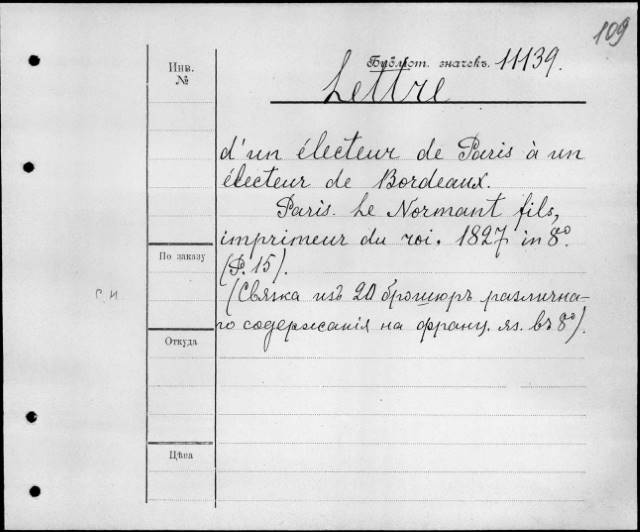 109
Инв.
№
Библіот. значекъ. 11139.
Lettre
d'un électeur de Paris à un
électeur de Bordeaux.
Paris. Le Normant fils,
imprimeur du roi. 1827 in 8º.
(P. 15).
По заказу
(Связка изъ 20 брошюръ различна-
го содержанія на франц. яз. въ 8º).
Р. И
Откуда
Цѣна